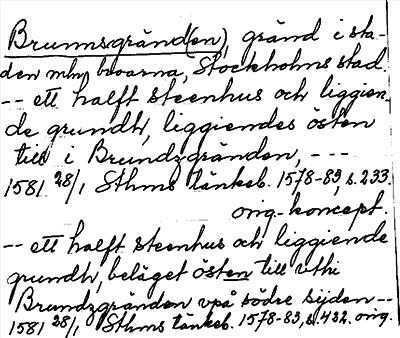 Brunnsgränd(en), gränd i sta-
den mln broarna, Stockholms stad.
-- ett halft steenhus och liggien-
de grundt, liggiendes östen
till i Brundzgränden, ---
1581 28/1, Sthms tänkeb. 1578-83, s. 233.
orig.-koncept.
-- ett halft steenhus och liggiende
grundt, beläget östen till uthi
Brundzgränden vpå södre sijden --
1581 28/1, Sthms tänkeb. 1578-83, s. 432. orig.